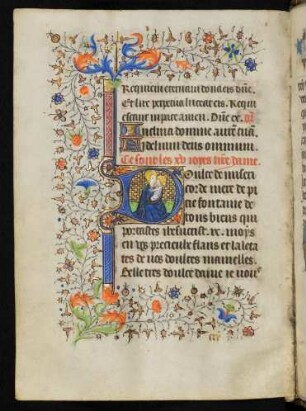 Requiem eternam dona eis dñe.
Et lux perpetua luceat eis. Requi
escant in pace. amen. Dñe ex.
Inclina domine aurem tuam.
Fidelium deus omnium
Ce sont les xv ioyes nr̃e dame.
Doulce dame de miseri
corde mere de pi
tie fontaine de
tous biens qui
portastes ihesucrist .ix. moys
en vr̃e precieulx flans et lalaita
tes de vos doulces mamelles.
Belle tres doulce dame ie vous